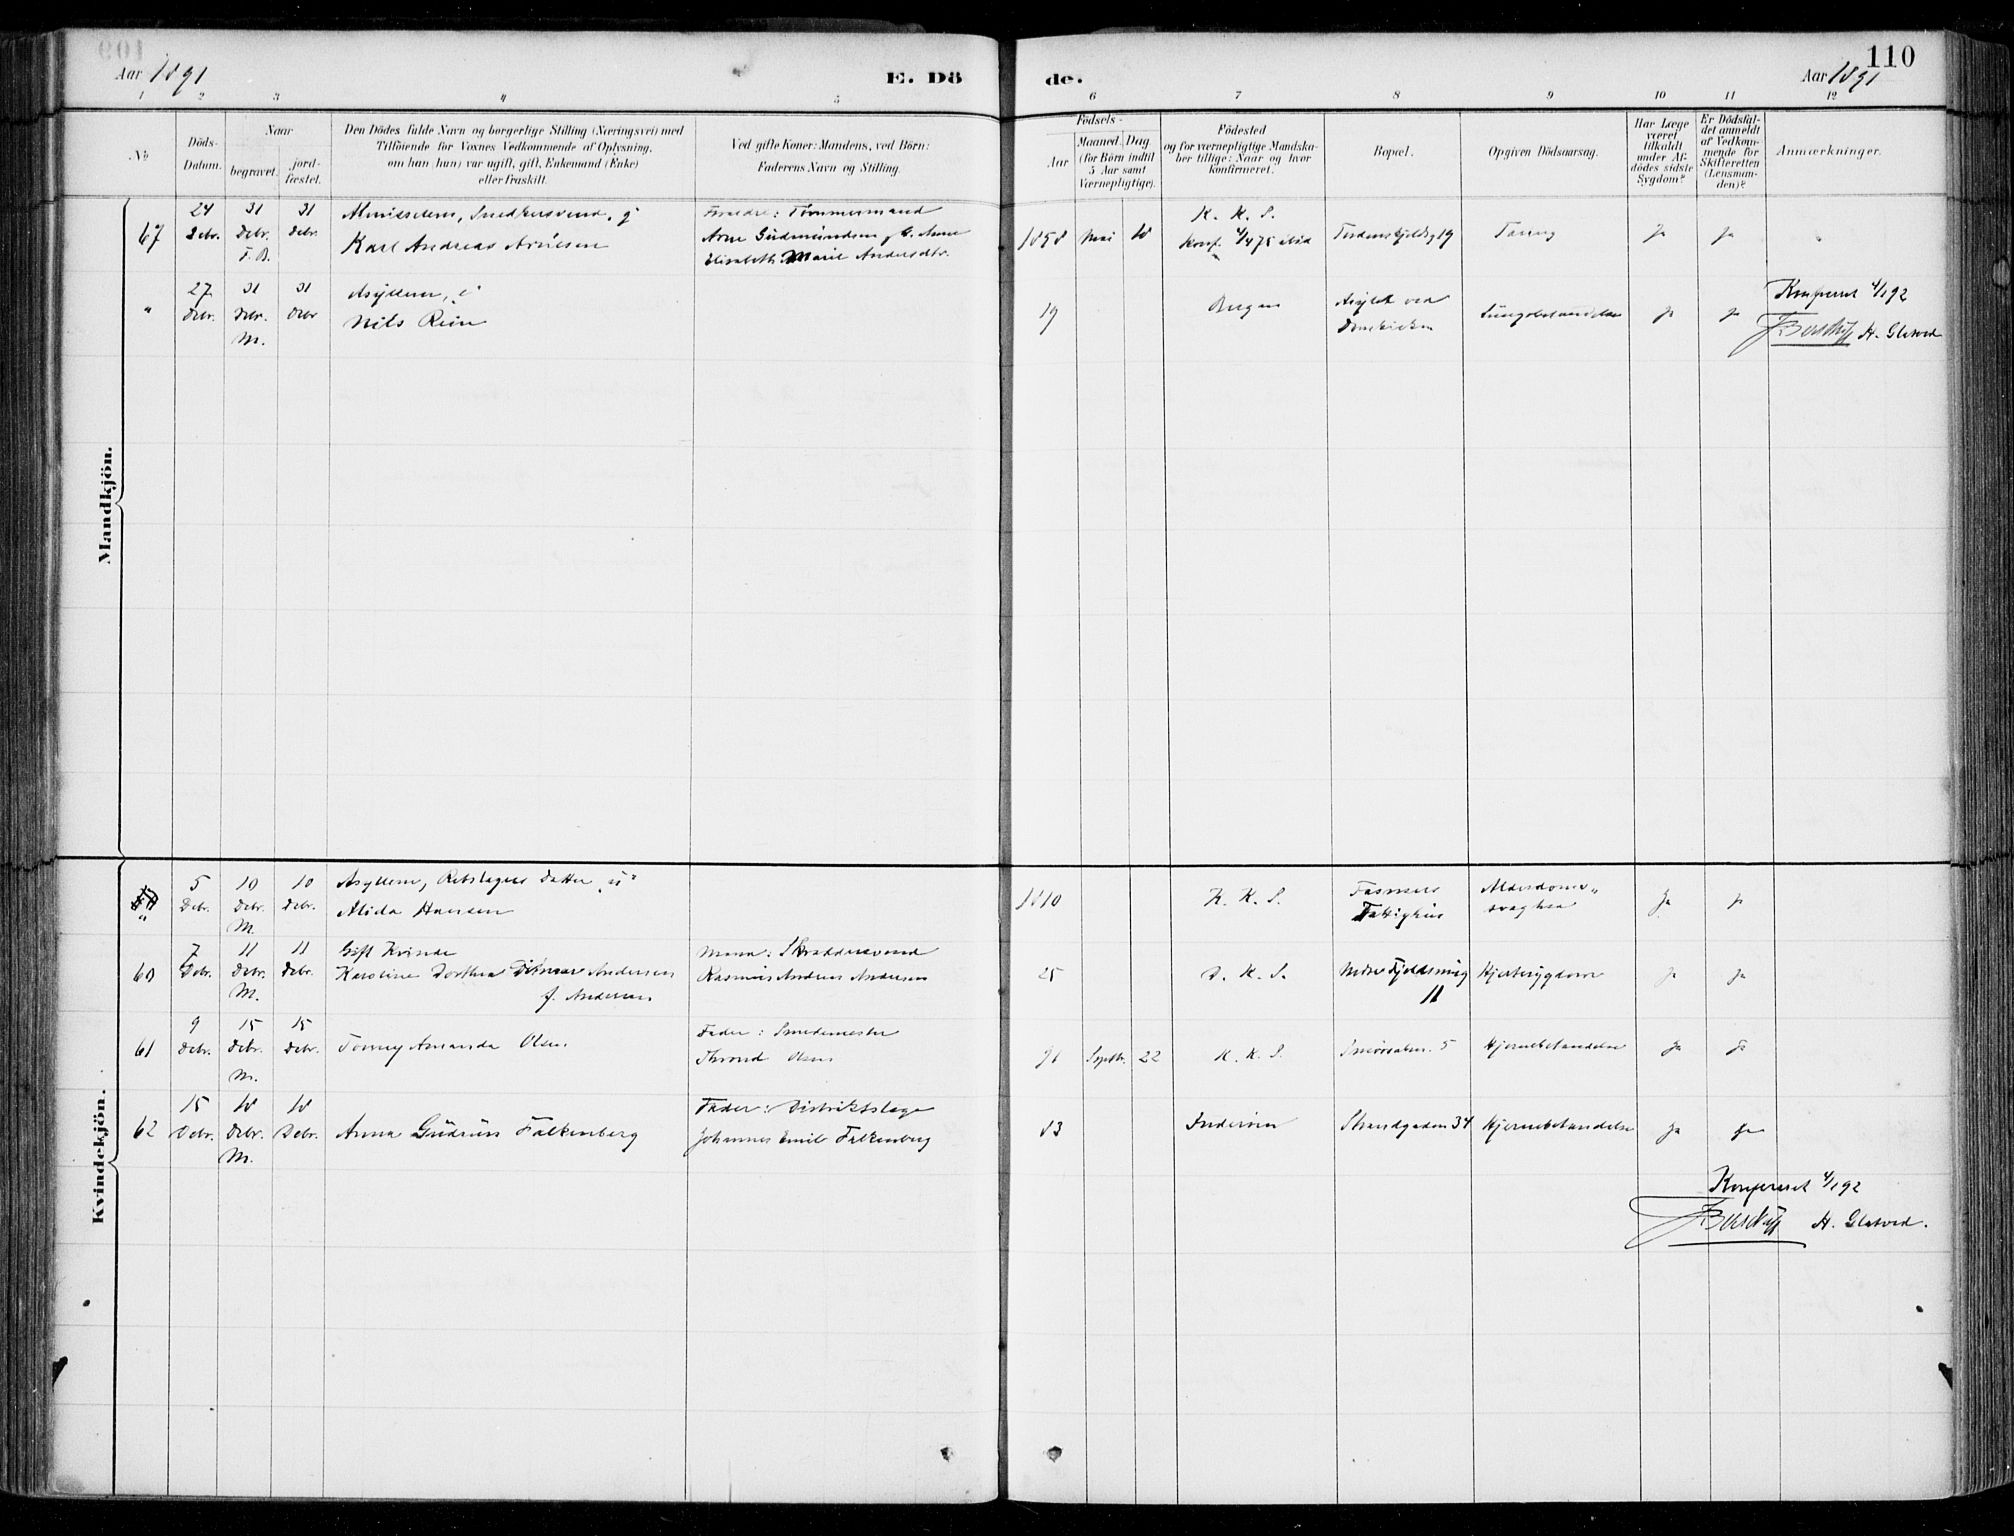 110
Aar 1891
E. Dö
de.
Aar 1891
1 2 3 4 5 6 7 8 9 10 11 12
No
Döds-
Datum.
Naar
begravet.
jord-
fæstet.
Den Dödes fulde Navn og borgerlige Stilling (Næringsvei) med
Tilföiende for Voxnes Vedkommende af Oplysning,
om han (hun) var ugift, gift, Enkemand (Enke)
eller fraskilt.
Ved gifte Koner: Mandens, ved Börn:
Faderens Navn og Stilling.
Födsels-
Aar
Maaned. Dag
(for Börn indtil
5 Aar samt
Værnepligtige).
Födested
og for værnepligtige Mandska-
ber tillige: Naar og hvor
konfirmeret.
Bopæl.
Opgiven Dödsaarsag.
Har Læge
været
tilkaldt
under Af-
dödes sidste
Sygdom?
Er Dödsfal-
det anmeldt
af Vedkom-
mende for
Skifteretten
(Lensman-
den)?
Anmærkninger.
Mandkjön.
67
24
Debr.
31
Debr.
F. B.
31
Debr.
Snedkersvend, g
Karl Andreas Arnesen
Forældre: Tömmermand
Arne Gudmundsen
Elisabeth Marie Andersdtr.
1858 Mai 18
K. K. S.
Konf. 4/4 75 ibid
Tordenskjoldsg 19
Tæring
Ja
ja
"
27
Debr.
31
Debr.
M.
31
Debr
Asyllem,
Nils Rein
19
Bergen
Asylet ved
Domkirken
Lungebetændelse
ja
ja
Konfereret 4/1 92
H. Gletved
Kvindekjön.
"
5
Debr.
10
Debr.
M.
10
Debr.
Asyllem, Rebslagers Datter "u"
Alida Hansen
1810
K. K. S.
Fasmers
Fattighus
Alderdoms-
svaghed
Ja
ja
60
7
Debr.
11
Debr.
M.
11
Debr.
Gift Kvinde
Karoline Dorthea Ditmar Andersen
f. Andersen
Mand: Skræddersvend
Rasmus Andreas Andersen
25
D. K. S.
Nedre Fjeldsmug
11
Hjertesygdom
Ja
Ja
61
9
Debr.
15
Debr.
M.
15
Debr.
Tonny Amanda Olsen
Fader: Smedemester
Thrond Olsen
91 Septbr. 22
K. K. S.
Smörsalm. 5
Hjernebetændelse
Ja
Ja
62
15
Debr.
18
Debr.
M.
18
Debr.
Anna Gudrun Falkenberg
Fader: Distriktslæge
Johannes Emil Falkenberg
83
Inderöen
Strandgaden 34
Hjernebetændelse
Ja
Ja
Konfereret 4/1 92
H. Gletved.